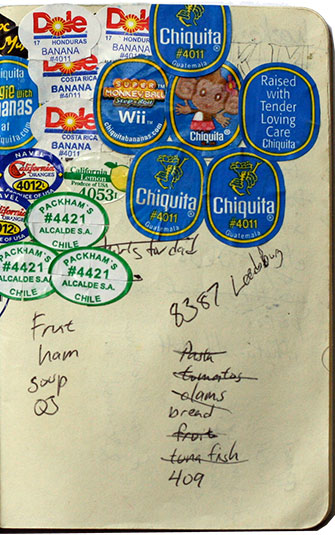 Dole
17 HONDURAS
BANANA
#4011
Dole
BANANA
#4011
Chiquita
#4011
Guatemala
Dole
COSTA RICA
BANANA
#4011
SUPER
MONKEY BALL
Step & Roll
Wii
chiquitabananas.com
Chiquita
Raised
with
Tender
Loving
Care
Chiquita
Dole
COSTA RICA
BANANA
#4011
NAVEL
California
ORANGES
4012
PRODUCE OF USA
California
Lemon
Produce of USA
4053
NAVEL
Chiquita
#4011
Guatemala
Chiquita
#4011
Guatemala
PACKHAM'S
#4421
ALCALDE S.A.
CHILE
PACKHAM'S
#4421
ALCALDE S.A.
CHILE
PACKHAM'S
#4421
ALCALDE S.A.
CHILE
8387 Leedsbug
Fruit
ham
soup
OJ
Pasta
tomatos
clams
bread
fruit
tuna fish
409